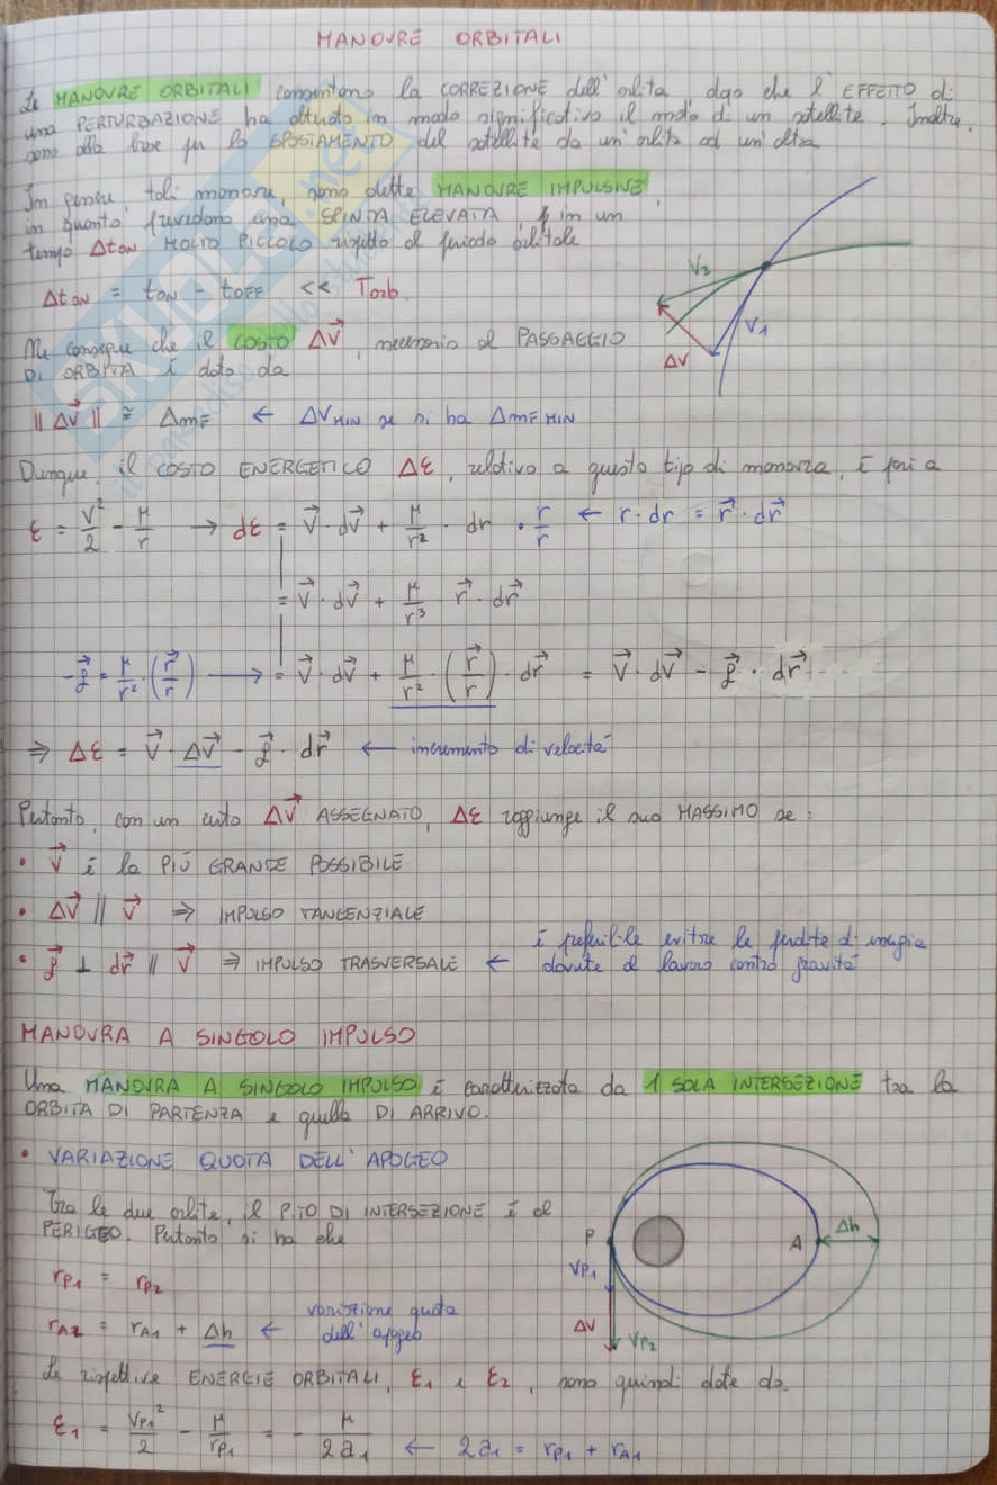 MANOVRE ORBITALI
Le MANOVRE ORBITALI consentono la CORREZIONE dell'orbita, dopo che l'EFFETTO di
una PERTURBAZIONE ha alterato in modo significativo il moto di un satellite. Inoltre,
sono alla base per lo SPOSTAMENTO del satellite da un'orbita ad un'altra.
In genere, tali manovre, sono dette MANOVRE IMPULSIVE,
in quanto prevedono una SPINTA ELEVATA, in un
tempo Δt_ON MOLTO PICCOLO rispetto al periodo orbitale
Δt_ON = t_ON - t_OFF << T_orb
V₂
V₁
ΔV
Ne consegue che il COSTO ΔV⃗, necessario al PASSAGGIO
DI ORBITA è dato da
||ΔV⃗|| ≅ Δm_F ← ΔV_MIN se si ha Δm_F MIN
Dunque, il COSTO ENERGETICO Δε, relativo a questo tipo di manovra, è pari a
ε = V²/2 - μ/r → dε = V⃗ · dV⃗ + μ/r² · dr · r/r ← r · dr = r⃗ · dr⃗
= V⃗ · dV⃗ + μ/r³ r⃗ · dr⃗
-g⃗ = μ/r² · (r⃗/r) → = V⃗ · dV⃗ + μ/r² · (r⃗/r) · dr⃗ = V⃗ · dV⃗ - g⃗ · dr⃗
⇒ Δε = V⃗ · ΔV⃗ - g⃗ · dr⃗ ← incremento di velocità
Pertanto, con un certo ΔV⃗ ASSEGNATO, Δε raggiunge il suo MASSIMO se:
• V⃗ è la PIÙ GRANDE POSSIBILE
• ΔV⃗ || V⃗ ⇒ IMPULSO TANGENZIALE
• g⃗ ⊥ dr⃗ || V⃗ ⇒ IMPULSO TRASVERSALE ← è preferibile evitare le perdite di energia
dovute al lavoro contro gravità
MANOVRA A SINGOLO IMPULSO
Una MANOVRA A SINGOLO IMPULSO è caratterizzata da 1 SOLA INTERSEZIONE tra la
ORBITA DI PARTENZA e quella DI ARRIVO.
• VARIAZIONE QUOTA DELL'APOGEO
Tra le due orbite, il P.TO DI INTERSEZIONE è al
PERIGEO. Pertanto si ha che
r_P1 = r_P2
r_A2 = r_A1 + Δh ← variazione quota
dell'apogeo
P
A
Δh
V_P1
ΔV
V_P2
Le rispettive ENERGIE ORBITALI, ε₁ e ε₂, sono quindi date da
ε₁ = V_P1²/2 - μ/r_P1 = - μ/2a₁ ← 2a₁ = r_P1 + r_A1